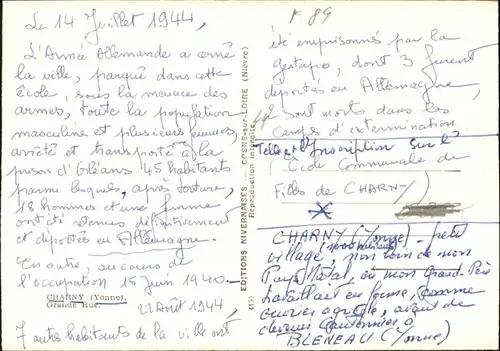 Le 14 Juillet 1944,
L'Armée Allemande a cerné
la ville, parqué dans cette
École, sous la menace des
armes, toute la population
masculine et plusieurs femmes,
arrêté et transporté à la
prison d'Orléans 45 habitants
parmi lesquels, après torture,
18 hommes et une femme
ont été retenus définitivement
et déportés en Allemagne.
En outre, au cours de
l'occupation 16 Juin 1940 -
CHARNY (Yonne).
Grande Rue
22 Août 1944,
7 autres habitants de la ville ont
EDITIONS NIVERNAISES - COSNE-sur-LOIRE (Nièvre)
Reproduction interdite
(415)
F 89
été emprisonnés par la
gestapo, dont 3 furent
déportés en Allemagne,
2 sont morts dans les
camps d'extermination
Telle est l'Inscription sur l'
École Communale de
Filles de CHARNY)
CHARNY (Yonne) - petit
village, non loin de mon
Pays Natal, où mon Grand-Père
travaillait en ferme, comme
ouvrier agricole, avant de
devenir Cantonnier à
BLENEAU (Yonne)